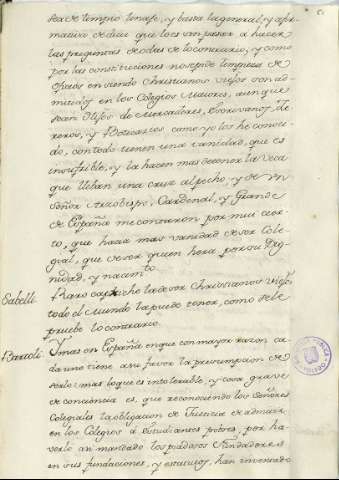 sea de limpio linaje, y basta la general, y afir-
mativa de dicir que lo es sin pasar a hacer
las preguntas de odas de lo contrario, y como
por las constituciones no se pide limpieza de
oficios en siendo Christianos viejos son ad-
mitidos en los Colegios Maiores, aunque
sean Hijos de Mercaderes, Escrivanos, Te-
xeros, y Boticarios como yo los he conoci-
do, con todo tienen una vanidad, que es
insufrible, y la hacen mas de conor la Veca
que lleban una cruz al pecho, y de un
señor Arzobispo, Cardenal, y Grande
de España me contaron por mui cier-
to, que hacia mas vanidad de ser Cole-
gial, que de ser quien hera, por su Dig-
nidad, y nacimto.
Sabelli. Raro capricho la de ser Christianos Viejos
todo el Mundo la puede tener, como se le
pruebe lo contrario.
Bartoli. Y mas en España en que con mayor razon ca-
da uno tiene a su favor la presumpcion de
serlo: mas lo que es intolerable, y cosa grave
de conciencia es, que reconociendo los Señores
Colegiales la obligacion de Justicia de admitir
en los Colegios a estudiantes pobres, por ha-
verlo an mandado los piadosos Fundadores
en sus fundaciones, y estatutos, han inventado